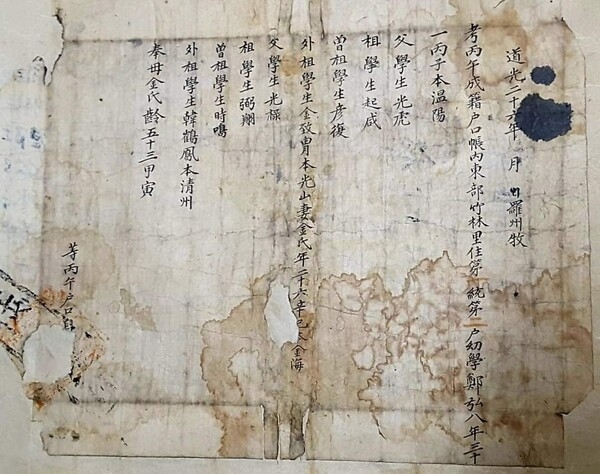 道光二十六年 月 日羅州牧
考丙午成籍戶口帳內東部竹林里住第 統第 戶幼學鄭弘八年三十
一丙子本溫陽
父學生光虎
祖學生起咸
曾祖學生彥復
外祖學生金致 本光山妻金氏年二十六辛巳本金海
父學生光
祖學生弼翔
曾祖學生時鳴
外祖學生韓鶴鳳本清州
奉母金氏齡五十三甲寅
等丙午戶口